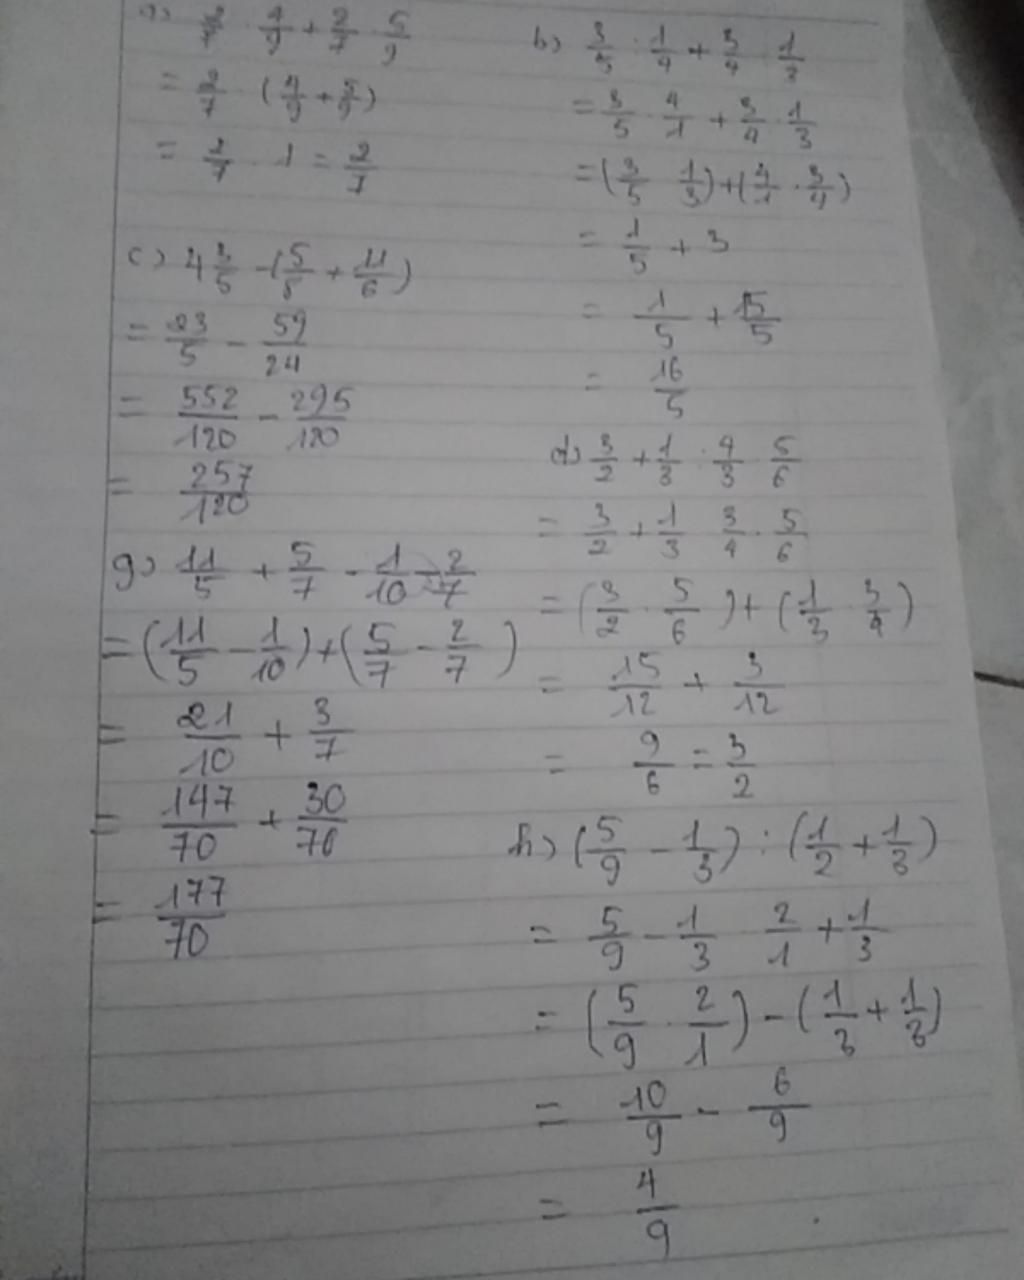 a) 2/7 · 4/9 + 2/7 · 5/9
= 2/7 · (4/9 + 5/9)
= 2/7 · 1 = 2/7
c) 4 3/5 - (5/8 + 11/6)
= 23/5 - 59/24
= 552/120 - 295/120
= 257/120
g) 11/5 + 5/7 - 1/10 - 2/7
= (11/5 - 1/10) + (5/7 - 2/7)
= 21/10 + 3/7
= 147/70 + 30/70
= 177/70
b) 3/5 · 1/4 + 3/4 · 1/3
= 3/5 4/1 + 3/4 · 1/3
= (3/5 1/3) + (4/1 · 3/4)
= 1/5 + 3
= 1/5 + 15/5
= 16/5
d) 3/2 + 1/3 · 4/3 · 5/6
= 3/2 + 1/3 3/4 · 5/6
= (3/2 · 5/6) + (1/3 3/4)
= 15/12 + 3/12
= 9/6 = 3/2
h) (5/9 - 1/3) : (1/2 + 1/3)
= 5/9 - 1/3 2/1 + 1/3
= (5/9 · 2/1) - (1/3 + 1/3)
= 10/9 - 6/9
= 4/9